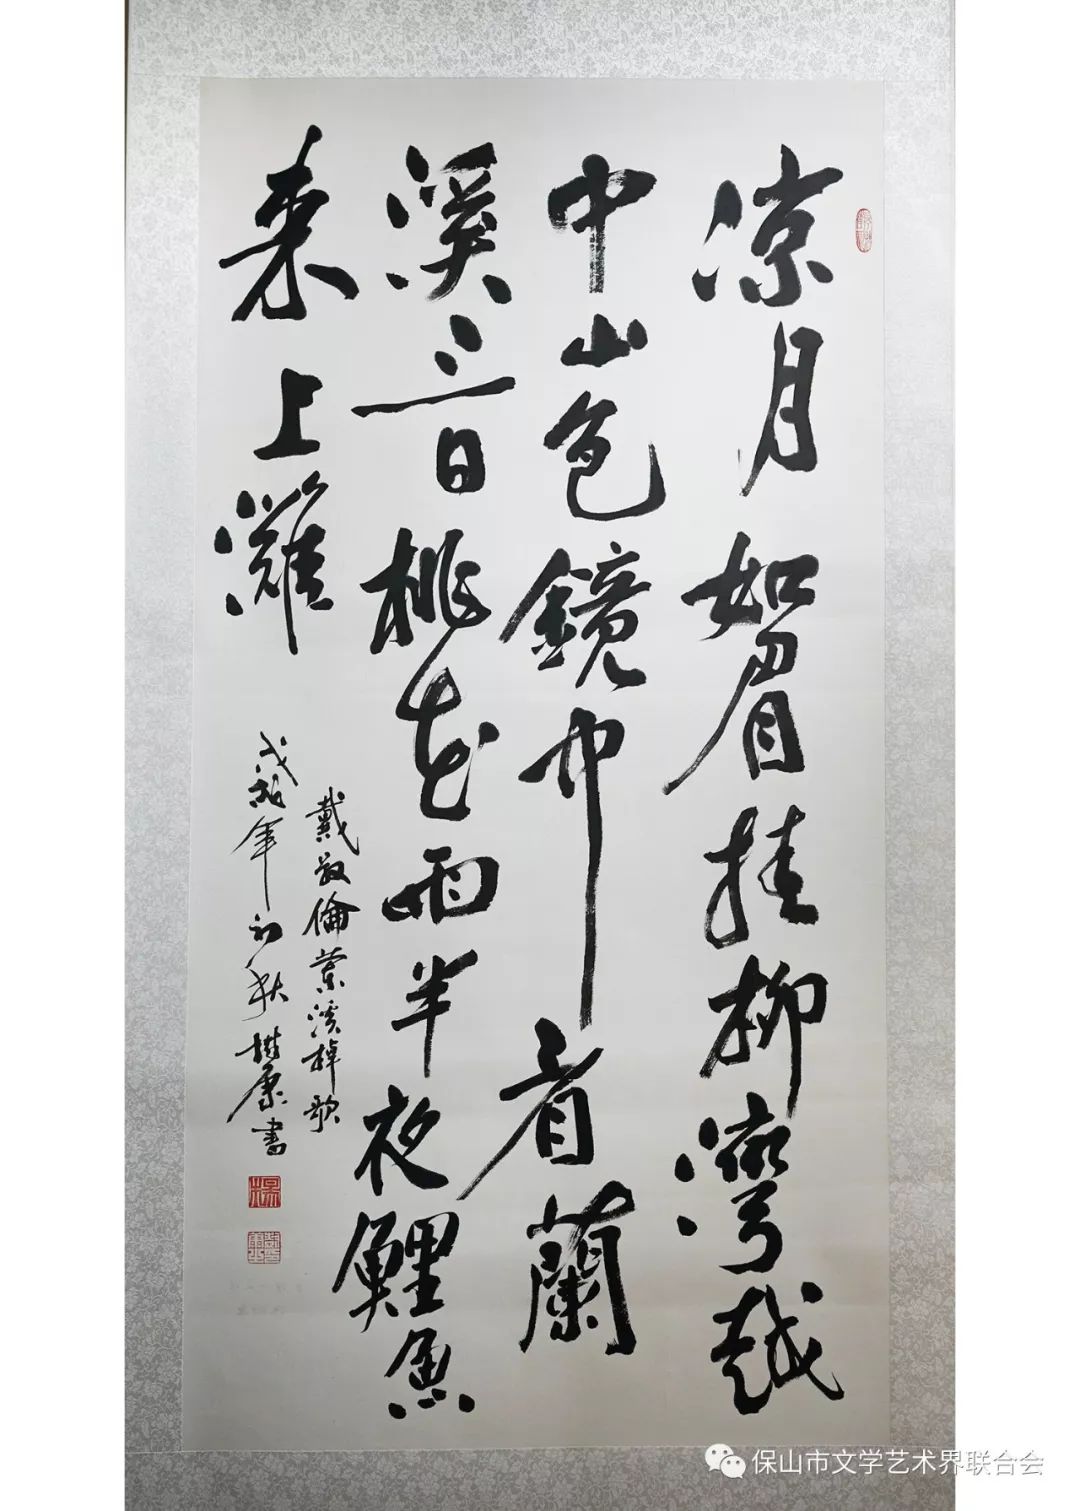 凉月如眉挂柳灣越
中山色鏡中看蘭
溪三日桃花雨半夜鯉魚
来上灘
戴叔倫蘭溪棹歌
戊戌年初秋樹康書
保山市文学艺术界联合会